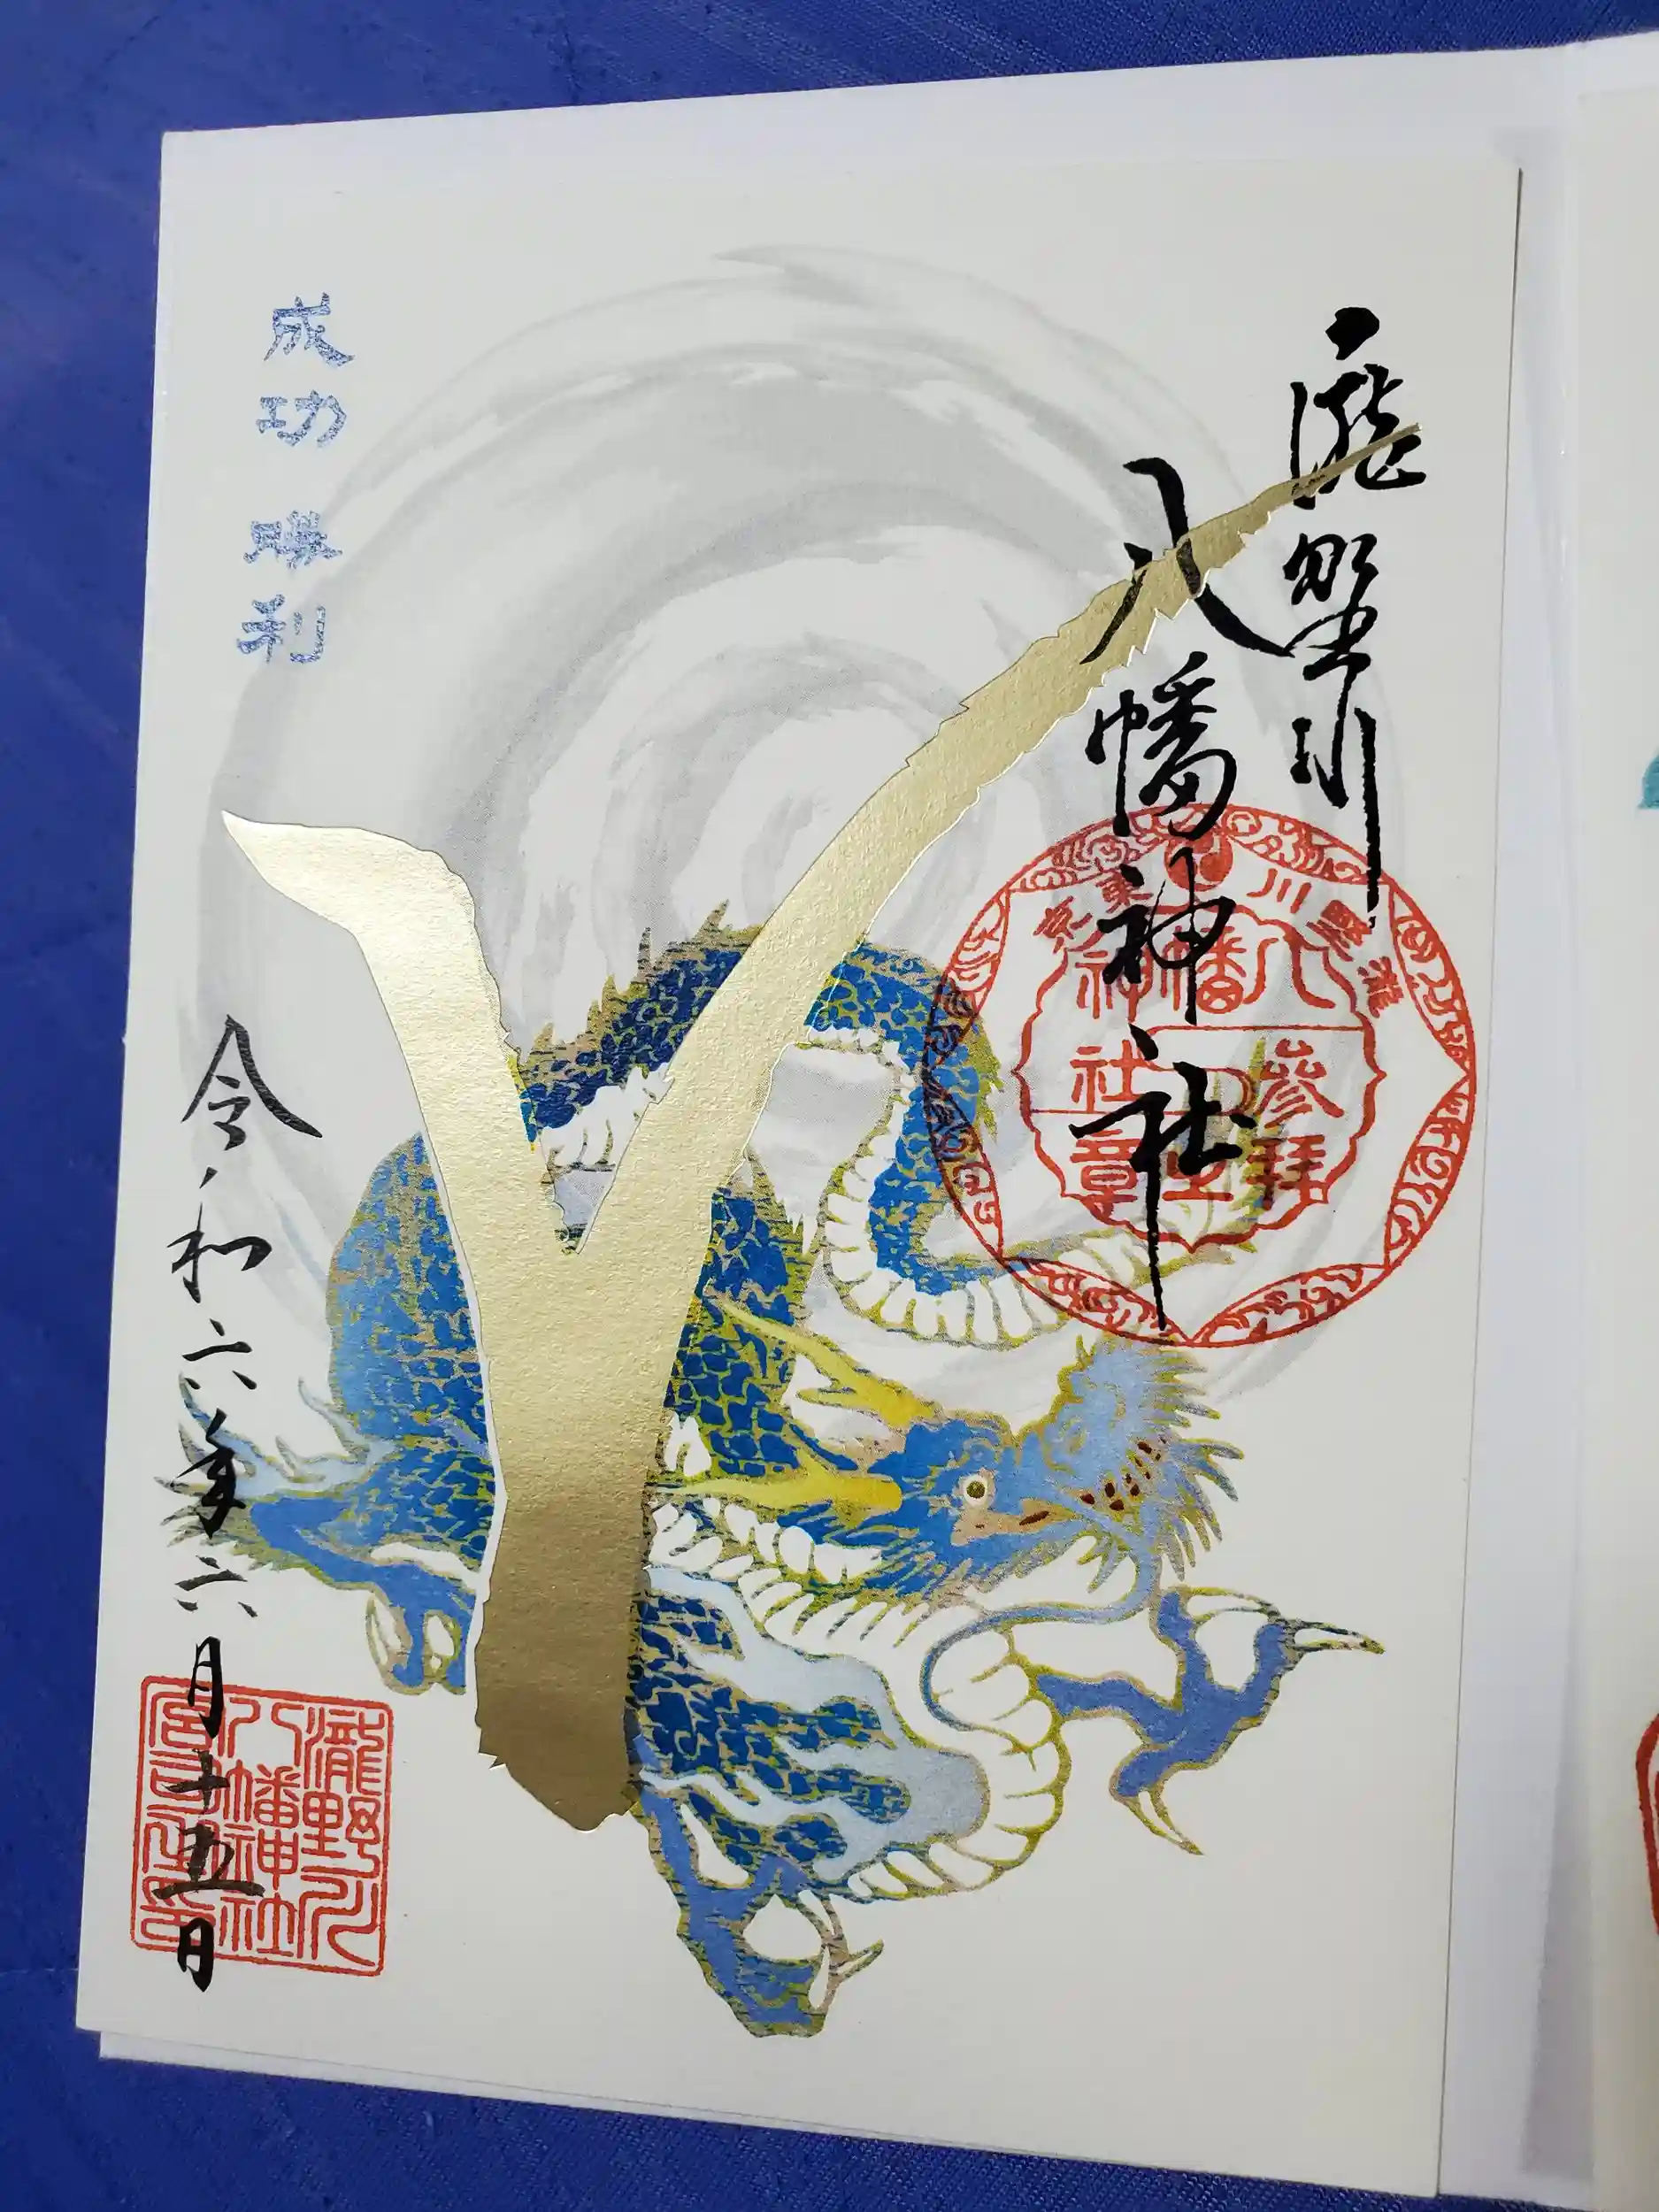 瀧野川
八幡神社
東京 瀧野川
八幡神社
参拝
章
成功 勝利
令和六年六月十五日
瀧野川
八幡神社